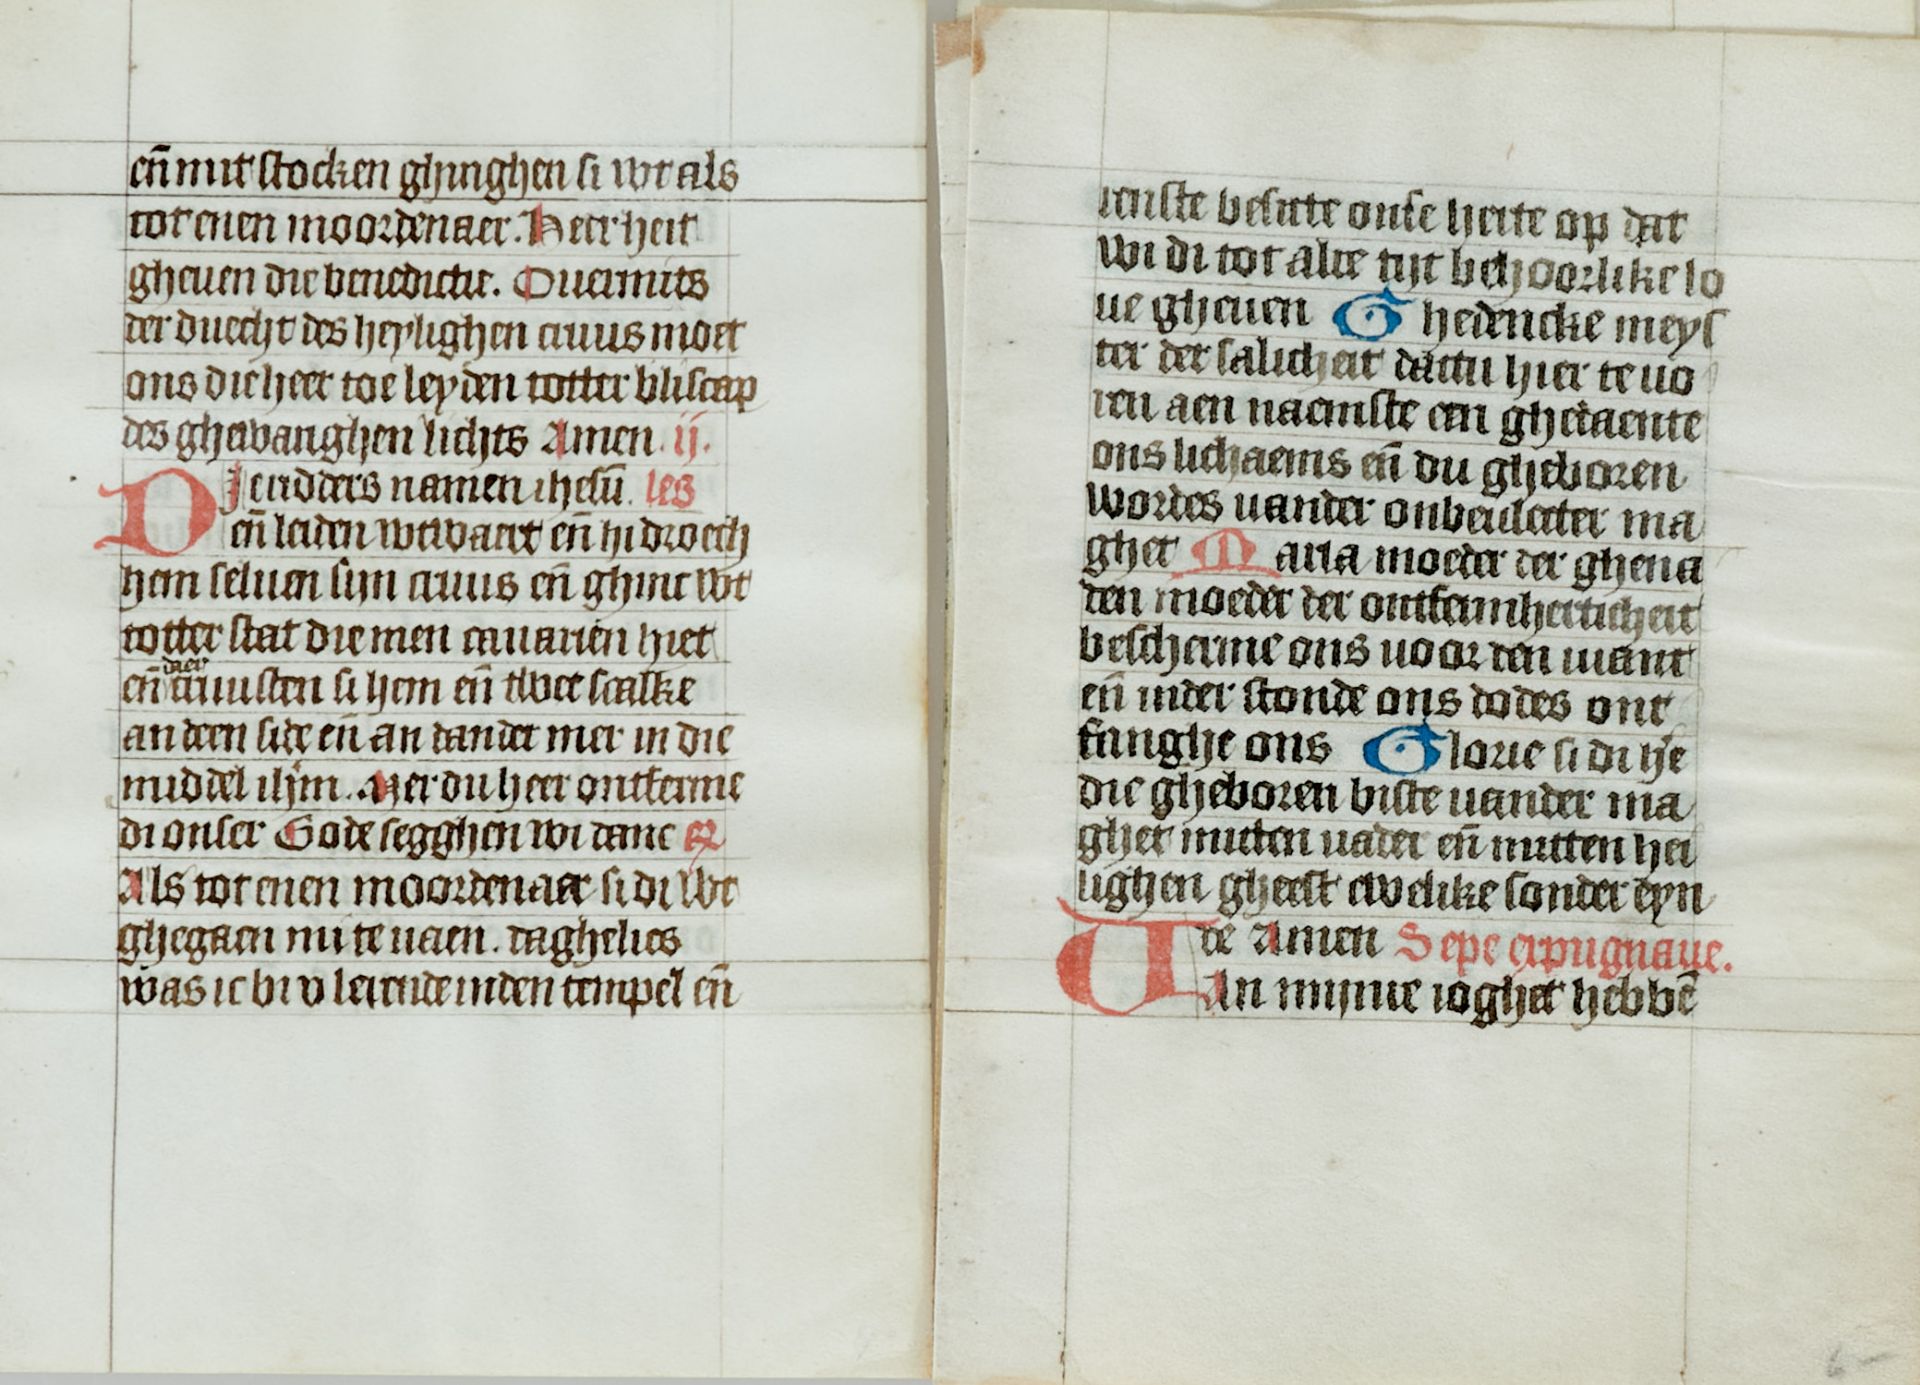 en̄ mit stocken ghinghen si wt als
tot enen moordenaer. Heer heit
gheuen die benedictie. Ouermits
der duecht des heylighen cruus moet
ons die heer toe leyden totter bliscap
des ghewanghen lichts Amen. ij.
DJe ridders namen ihesū. les
en̄ leiden wtwaert en̄ hi droech
hem seluen sijn cruus en̄ ghinc wt
totter stat die men caluarien hiet
en̄ daer cruusten si hem en̄ twee scalke
an deen side en̄ an dander mer in die
middel ihm̄. Mer du heer ontferme
di onser Gode segghen wi danc
Als tot enen moordenaer si di wt
ghegaen mi te uaen. daghelics
was ic bi v lerende inden tempel en̄
renste besitte onse herte op dat
wi di tot alre tijt behoorlike lo
ue gheuen Ghedencke meys
ter der salicheit dattu hier te uo
ren aen naemste een ghedaente
ons lichaems en̄ du gheboren
wordes uander onbeulecter ma
ghet Maria moeder der ghena
den moeder der ontfermherticheit
bescherme ons uoor den uiant
en̄ inder stonde ons dodes ont
fanghe ons Glorie si di he
die gheboren biste uander ma
ghet mitten uader en̄ mitten hei
lighen gheest ewelike sonder eyn
de Amen Sepe expugnaue.
VAn mijnre ioghet hebbē